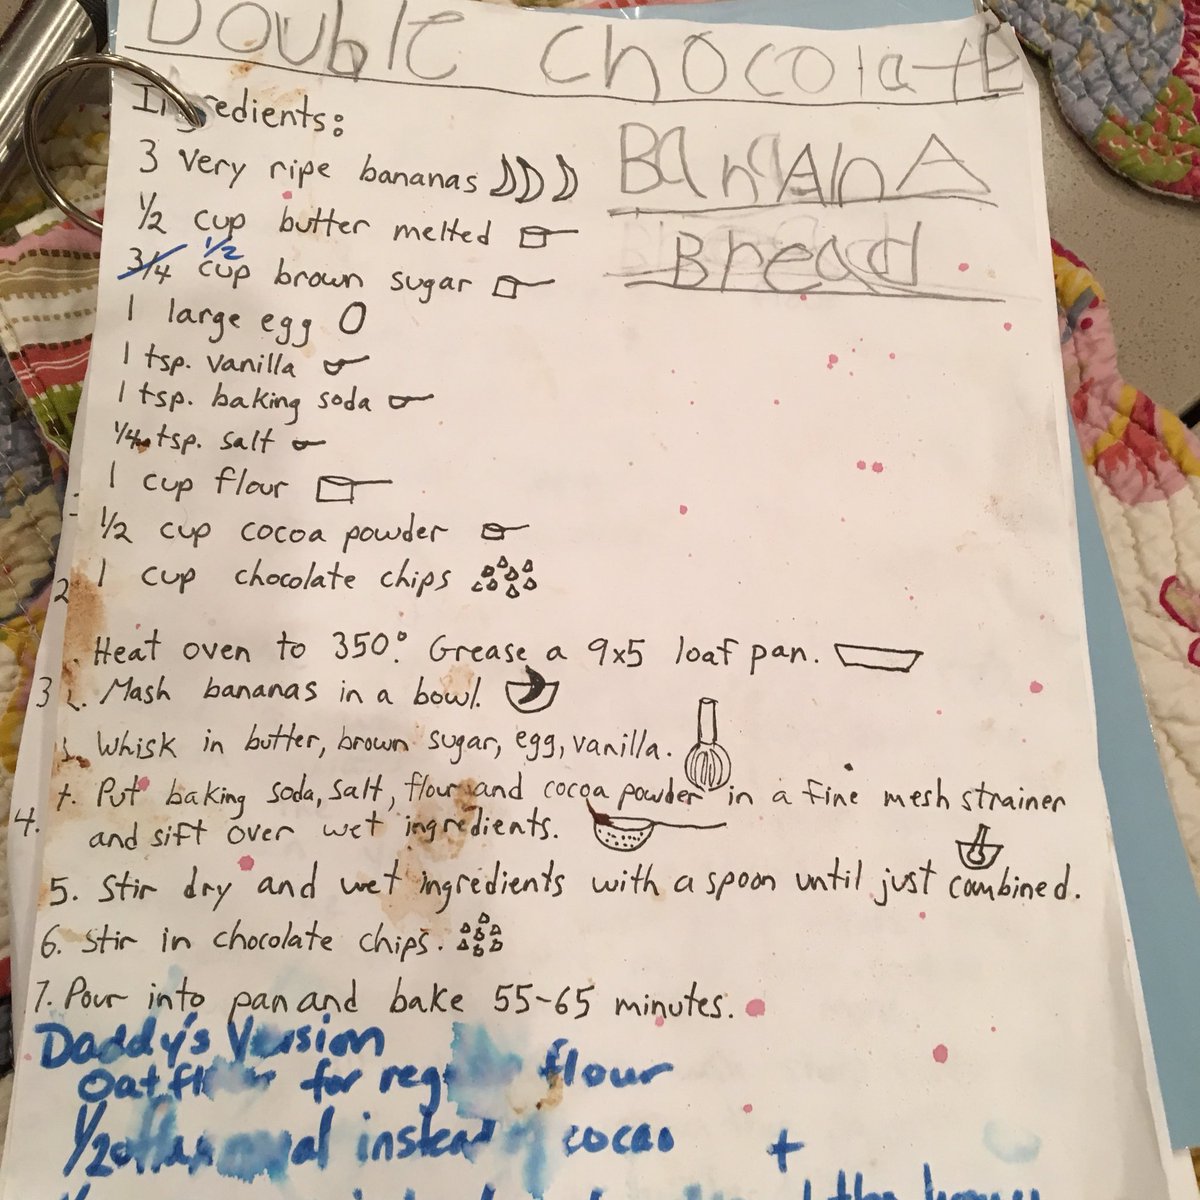 DOUBLE CHOCOlatE
BANANA
Bread
Ingredients:
3 very ripe bananas
1/2 cup butter melted
3/4 1/2 cup brown sugar
1 large egg
1 tsp. vanilla
1 tsp. baking soda
1/4 tsp. salt
1 cup flour
1/2 cup cocoa powder
1 cup chocolate chips
Heat oven to 350°. Grease a 9x5 loaf pan.
2. Mash bananas in a bowl.
3. Whisk in butter, brown sugar, egg, vanilla.
Put baking soda, salt, flour and cocoa powder in a fine mesh strainer
and sift over wet ingredients.
5. Stir dry and wet ingredients with a spoon until just combined.
6. Stir in chocolate chips.
7. Pour into pan and bake 55-65 minutes.
2
3
4.
Daddy's Version
Oat for flour
1/2 instead of cocao +
the